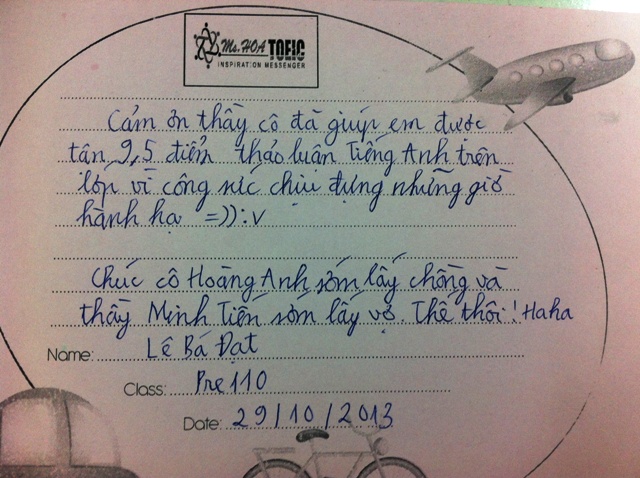 Ms. HOA TOEIC
INSPIRATION MESSENGER
Cảm ơn thầy cô đã giúp em được
tận 9,5 điểm thảo luận Tiếng Anh trên
lớp vì công sức chịu đựng những giờ
hành hạ =)):v
Chúc cô Hoàng Anh sớm lấy chồng và
thầy Minh Tiến sớm lấy vợ. Thế thôi! Haha
Name: Lê Bá Đạt
Class: Pre 110
Date: 29/10/2013